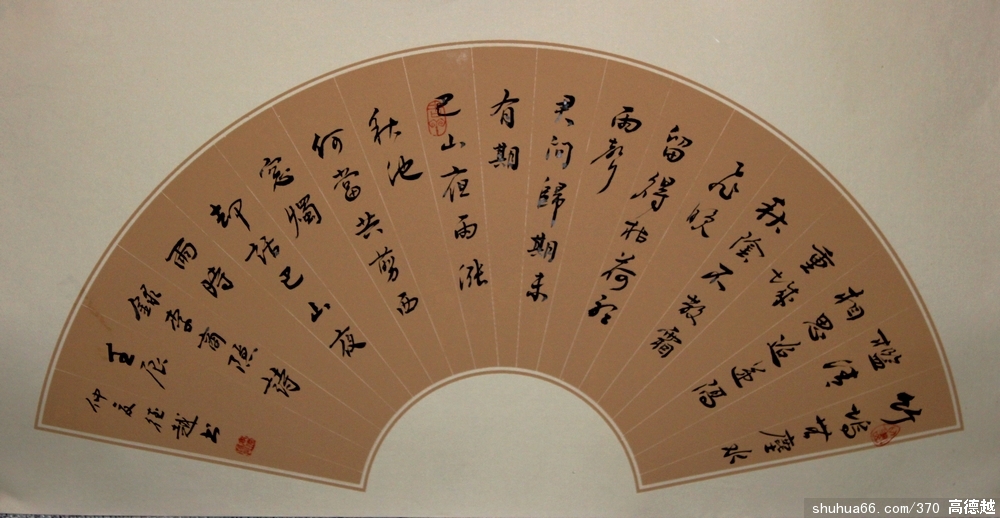 竹塢無塵水
檻清
相思迢遞隔
重城
秋陰不散霜
飛晚
留得枯荷聽
雨聲
君問歸期未
有期
巴山夜雨漲
秋池
何當共剪西
窓燭
却話巴山夜
雨時
錄李商隱詩
壬辰
仲夏德越书
shuhua66.com/370 高德越